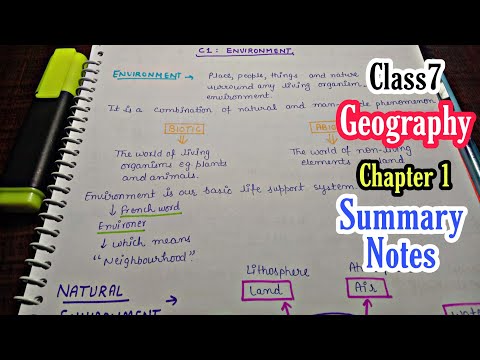 C1: ENVIRONMENT.
ENVIRONMENT → Place, people, things and nature
surround any living organism
environment.
It is a combination of natural and man-made phenomenon
BIOTIC
The world of living
organisms eg. plants
and animals.
The world of non-living
elements land
Environment is our basic life support system.
↓ French word
Environer
↓ which means
"Neighbourhood".
NATURAL
ENVIRONMENT
Lithosphere
Land
Air
Class7
Geography
Chapter 1
Summary
Notes